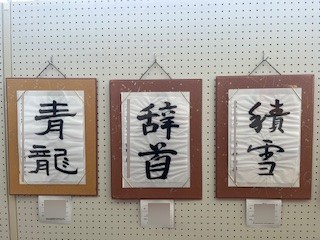 青龍
辞首
積雪